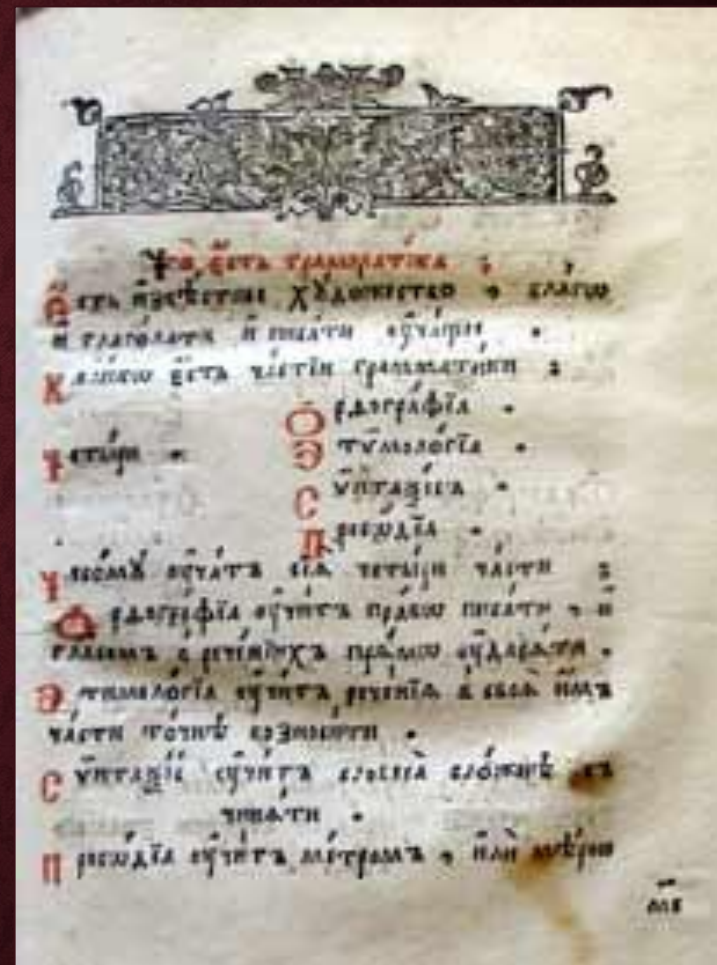 Что̀ є҆́сть грамма́тїка ;
Е҆́сть и҆звѣ́стное хꙋдо́жество , бла́гѡ
и҆ глаго́лати и҆ писа́ти ᲂу҆ча́щее .
Коли́кѡ є҆́сть часті́й грамма́тики ;
Четы́ри . Ѻ҆рѳогра́фїа .
Э҆тѷмоло́гїа .
Сѷ́нтаѯїсъ .
Просѡ́дїа .
Чесомꙋ̀ ᲂу҆ча́тъ сїѧ̑ четы́ри ча̑сти ;
Ѻ҆рѳогра́фїа ᲂу҆чи́тъ пра́вѡ писа́ти , и҆
гла́сомъ в̾ рече́нїихъ пра́мѡ ᲂу҆дарѧ́ти .
Э҆тѷмоло́гїа ᲂу҆чи́тъ рече́нїѧ в̾ своѧ̑ и҆̀мъ
ча̑сти то́чнѣ возноси́ти .
Сѷ́нтаѯїсъ ᲂу҆чи́тъ словеса̀ сло́жнѣ съ
чинѧ́ти .
Просѡ́дїа ᲂу҆чи́тъ ме́тромъ , и҆лѝ мѣ́рою